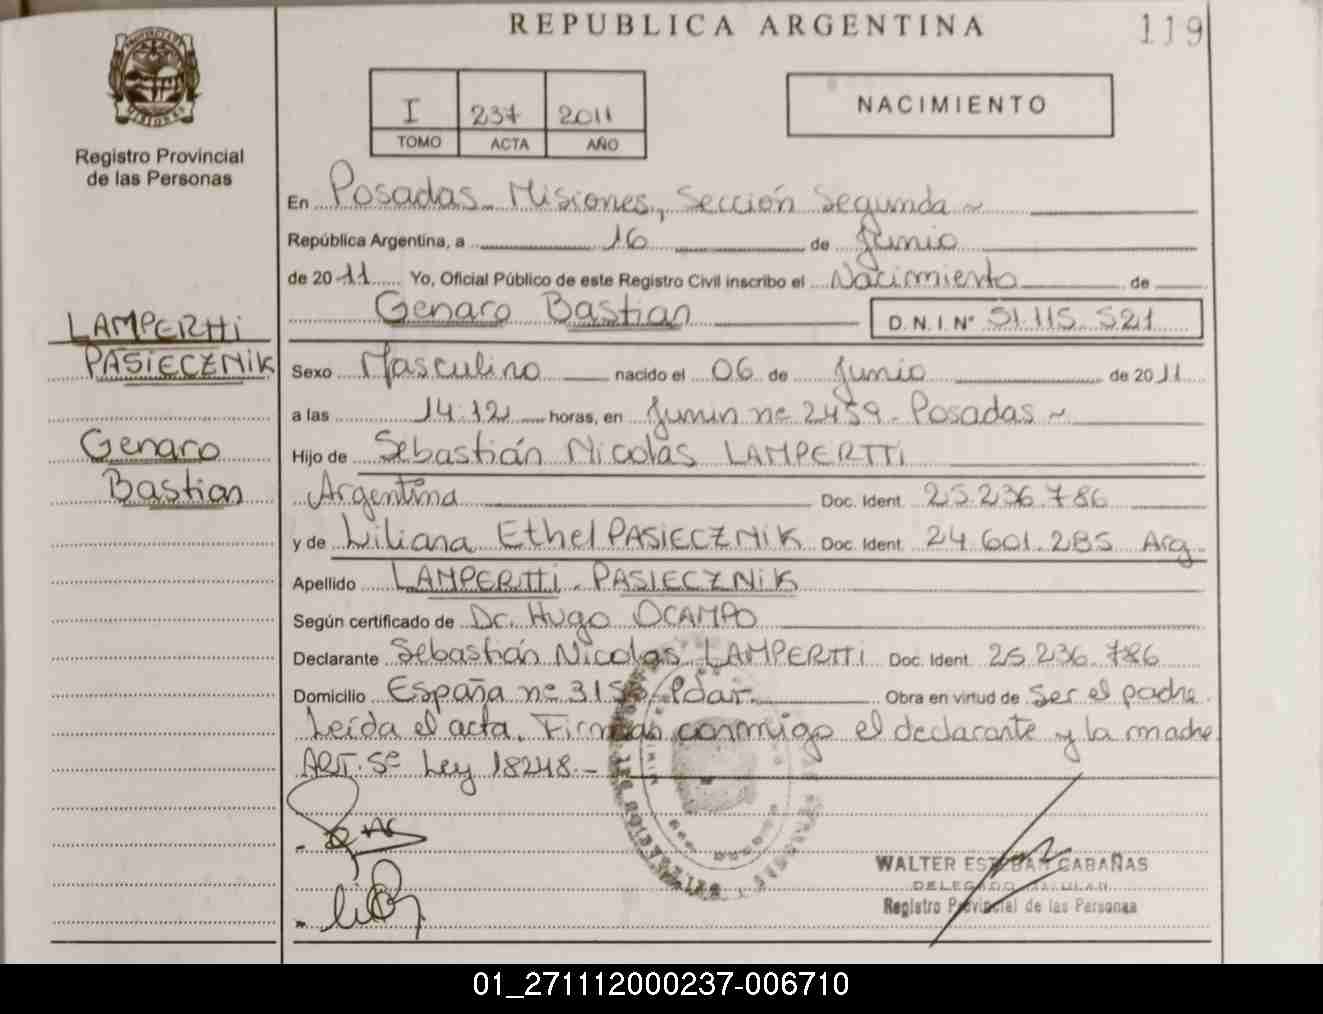 REPUBLICA ARGENTINA
119
PROVINCIA DE MISIONES
Registro Provincial
de las Personas
I 237 2011
TOMO ACTA AÑO
NACIMIENTO
En Posadas Misiones, Sección Segunda
República Argentina, a 16 de Junio
de 2011 Yo, Oficial Público de este Registro Civil inscribo el Nacimiento de
Genaro Bastian D.N.I. Nº 51.115.521
LAMPERTTI
PASIECZNIK
Genaro
Bastian
Sexo Masculino nacido el 06 de Junio de 2011
a las 14:12 horas, en Junin nº 2459 - Posadas
Hijo de Sebastián Nicolás LAMPERTTI
Argentina Doc. Ident. 25.236.786
y de Liliana Ethel PASIECZNIK Doc. Ident. 24.601.285 Arg
Apellido LAMPERTTI - PASIECZNIK
Según certificado de Dr. Hugo OCAMPO
Declarante Sebastián Nicolas LAMPERTTI Doc. Ident. 25.236.786
Domicilio España nº Pdas. Obra en virtud de ser el padre.
Leída el acta. Firman conmigo el declarante y la madre
ART. 5º Ley 18248.-
WALTER ESTEBAN CABAÑAS
DELEGADO
Registro Provincial de las Personas
01_271112000237-006710